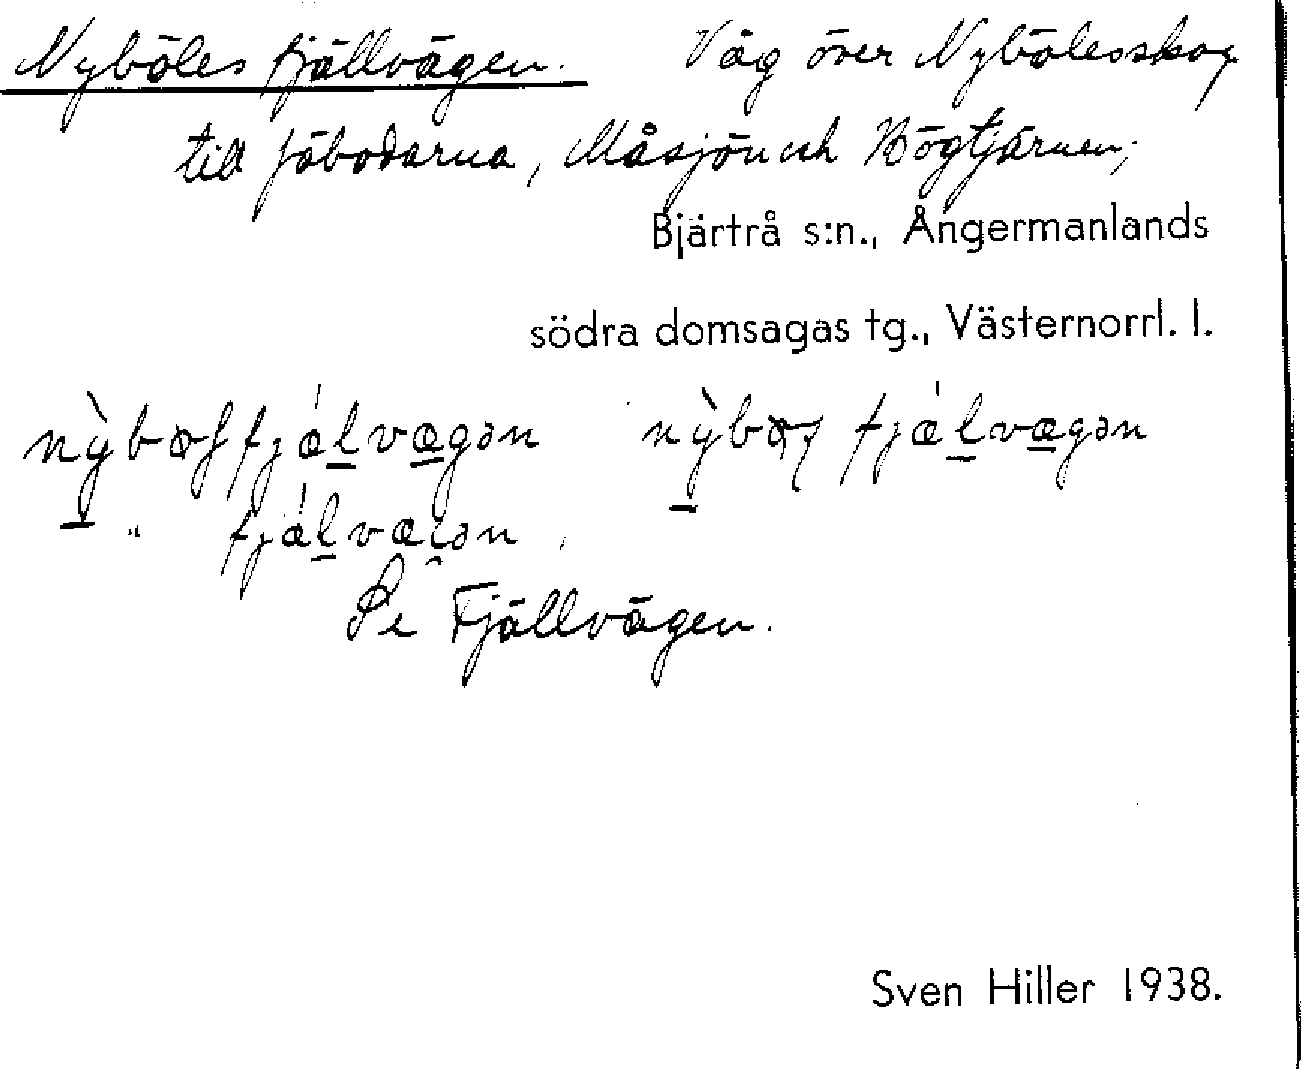 Nyböles fjällvägen. Väg över Nybölesskog
till fäbodarna, Måsjön och Högtjärnen;
Bjärtrå s:n., Ångermanlands
södra domsagas tg., Västernorrl. l.
fjæ̀lvægən
" fjælvæi̯ən,
Se Fjällvägen.
Sven Hiller 1938.